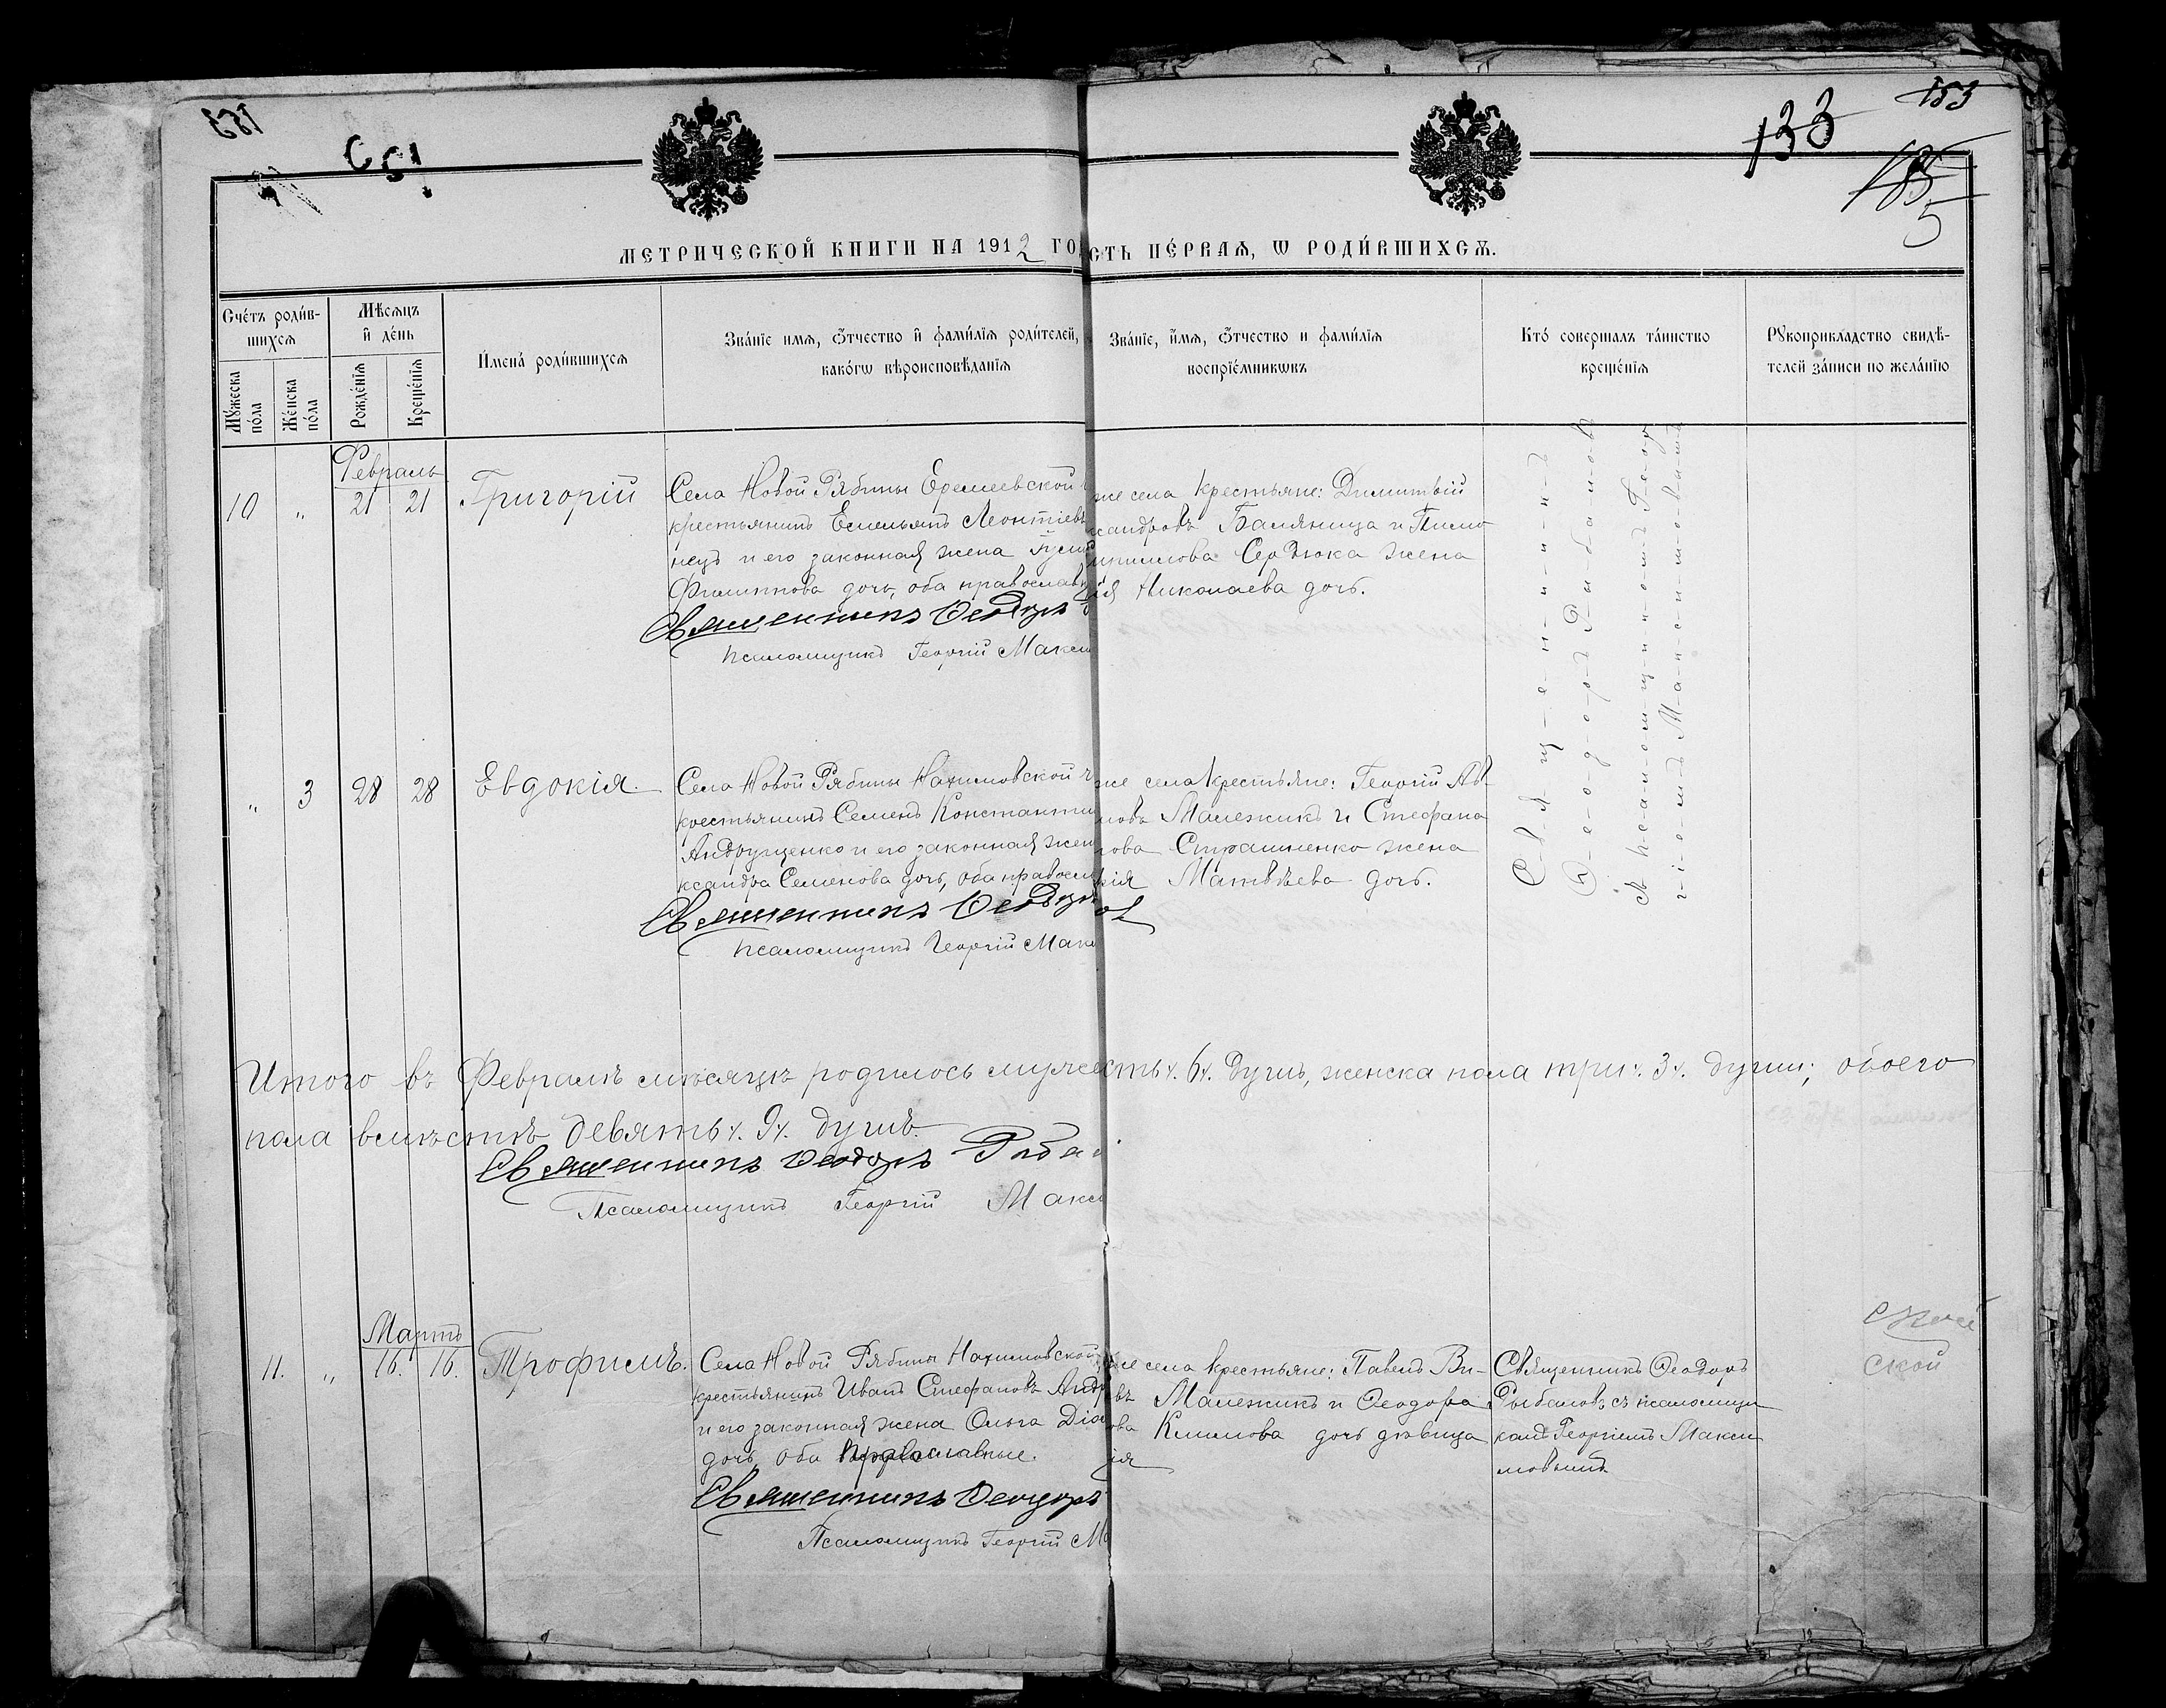 153
133
185
5
МЕТРИЧЕСКОЙ КНИГИ НА 1912 ГО
СТЬ ПЕ́РВАЯ, Ѡ РОДИ́ВШИХСЯ.
Сче́тъ роди́в-
шихся
Му́жеска по́ла
Же́нска по́ла
Мѣсяцъ
и де́нь
Рожде́нїя
Креще́нїя
И́мена̀ роди́вшихся
Зва́нїе имя, ѻ҆́тчество и҆ фами́лїя роди́телей,
како́гѡ вѣроисповѣ́данїя
Зва́нїе, и҆́мя, ѻ҆́тчество и фами́лїя
воспрїе́мникѡвъ
Кто́ соверша́лъ та́инство
креще́нїя
Рꙋкоприкла́дство свидѣ́-
телей за́писи по жела́нїю
Февраль
10 „ 21 21 Григорій
Села Новой Рябины Еремеевской
крестьянинъ Емельянъ Леонтіевъ
нецъ и его законная жена
Филиппова дочь, оба православн
Священникъ Ѳеодоръ
Псаломщикъ Георгій Макси
же села крестьяне: Димитрій
ксандровъ и
Сердюка жена
ія Николаева дочь.
Священникъ
Ѳеодоръ Рыбаловъ
съ псаломщикомъ Геор
гіемъ Максимовымъ
„ 3 28 28 Евдокія.
Села Новой Рябины Нахимовской
крестьянинъ Семенъ Константи
Андрущенко и его законная жен
ксандра Семенова дочь, оба правосл
Священникъ Ѳеодоръ
Псаломщикъ Георгій Макс
же села крестьяне: Георгій Ав-
мовъ Малежикъ и Стефана
нова Страшненко жена
кія Матвѣева дочь.
овъ
Итого въ Февралѣ мѣсяцѣ родилось мужес
сть ٪ 6 ٪ душъ, женска пола три ٪ 3 ٪ души; обоего
пола вмѣстѣ девять ٪ 9 ٪ душъ.
Священникъ Ѳеодоръ Рыбал
Псаломщикъ Георгій Макси
Мартъ
11. „ 16. 16. Трофимъ.
Села Новой Рябины Нахимовской
крестьянинъ Иванъ Стефановъ Андр
и его законная жена Ольга Діо
дочь, оба православные.
Священникъ Ѳеодоръ
Псаломщикъ Георгій М
же села крестьяне: Павелъ Ви-
въ Малежикъ и Ѳеодора
ова Климова дочь дѣвица
ія
Священникъ Ѳеодоръ
Рыбаловъ съ псаломщи
комъ Георгіемъ Макси
мовымъ
ской